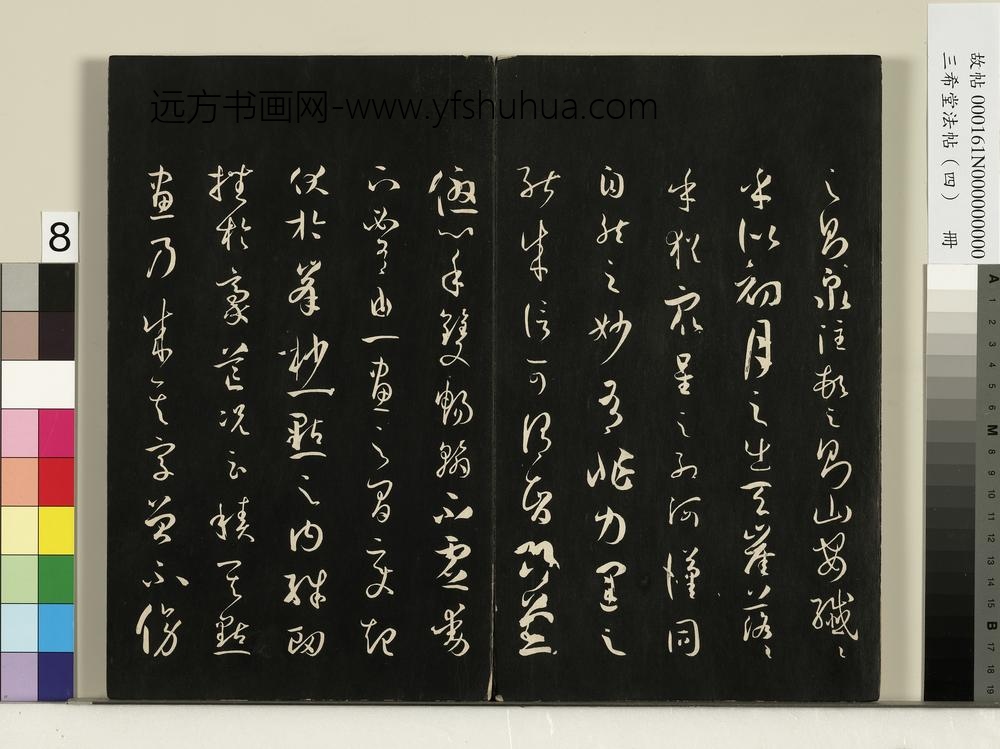 故帖 000161N000000000
三希堂法帖（四） 冊
远方书画网-www.yfshuhua.com
之則泉注頓之則山安纖〻
乎似初月之出天崖落〻
乎猶衆星之列河漢同
自然之妙有非力運之
能成信可謂智巧兼
優心手雙暢翰不虛動
下必有由一畫之間變起
伏於峯杪一點之內殊衄
挫於豪芒況云積其點
畫乃成其字曾不傍
8
A 1 2 3 4 5 6 M 8 9 10 11 12 13 14 15 B 17 18 19